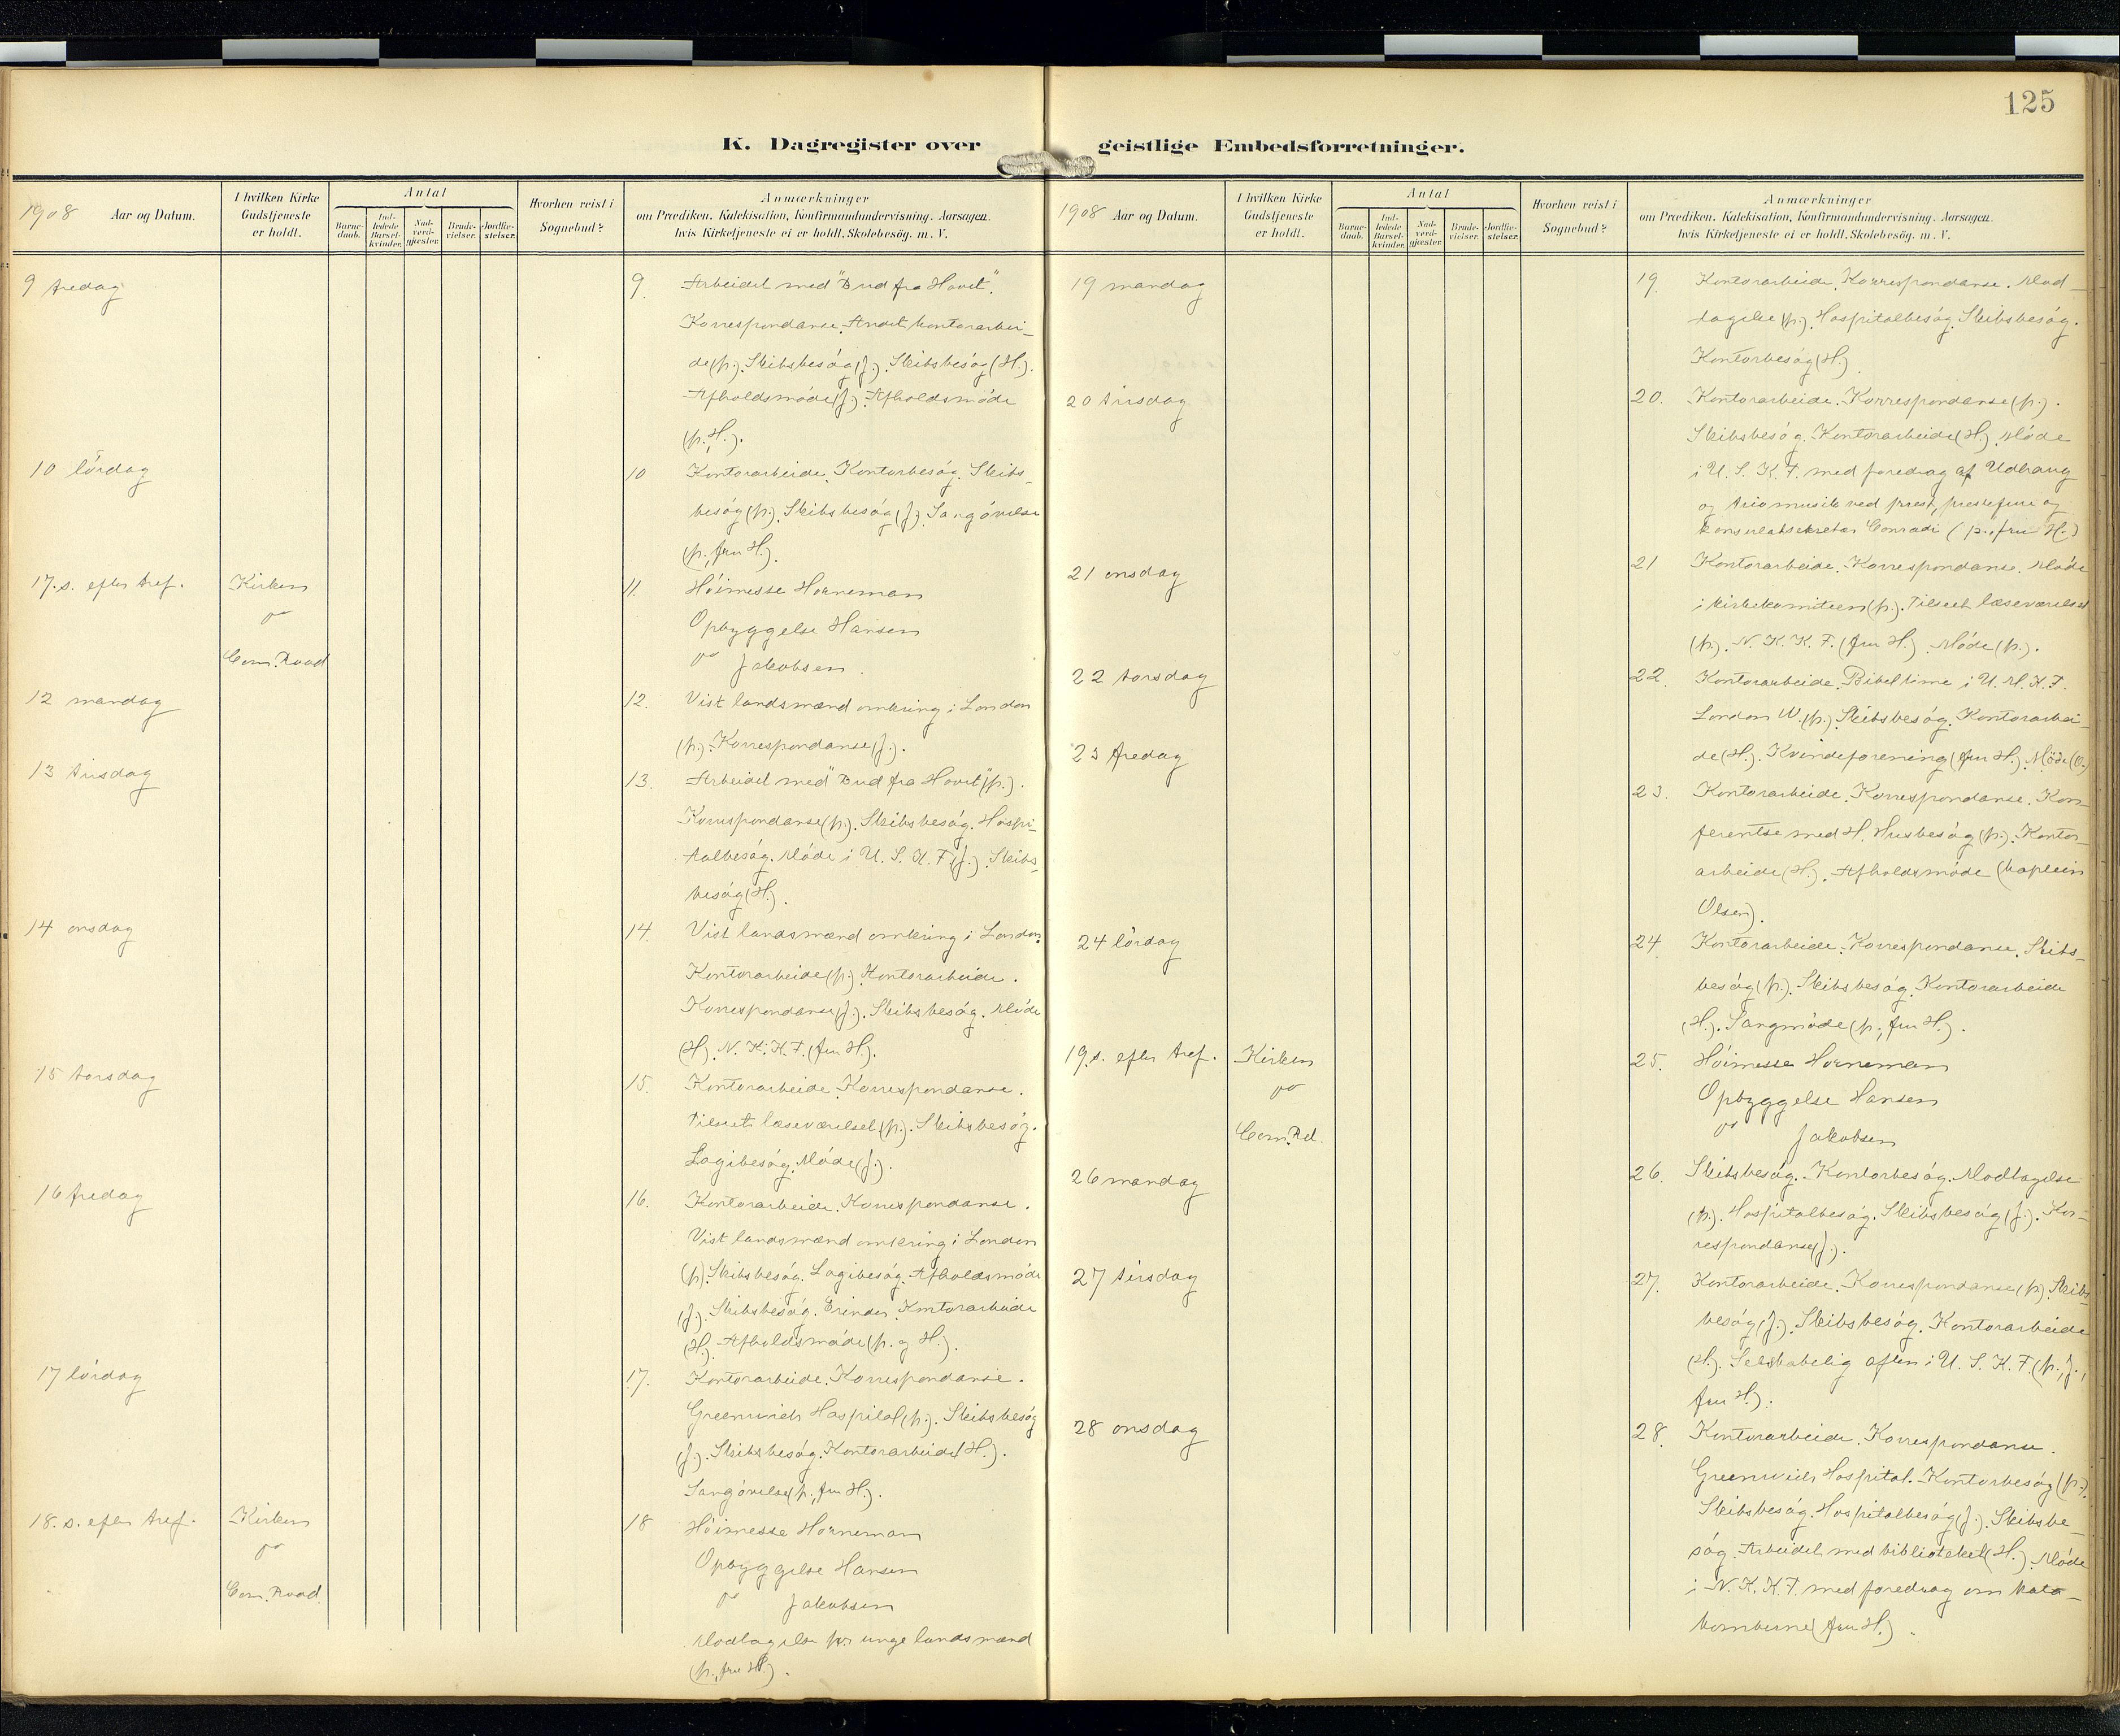 125
K. Dagregister over geistlige Embedsforretninger.
1908 Aar og Datum.
I hvilken Kirke Gudstjeneste er holdt.
Antal
Barne-daab.
Ind-ledede Barsel-kvinder.
Nad-verd-gjæster.
Brude-vielser.
Jordfæ-stelser.
Hvorhen reist i Sognebud?
Anmærkninger
om Prædiken, Katekisation, Konfirmandundervisning, Aarsagen,
hvis Kirketjeneste ei er holdt, Skolebesøg. m. V.
9 fredag
9. Arbeidet med "Bud fra Havet".
Korrespondanse. Andet kontorarbei-
de (p.). Skibsbesøg (J.). Skibsbesøg (H.).
Afholdsmøde (J.). Afholdsmøde
(p., H.).
10 lördag
10 Kontorarbeide. Kontorbesøg. Skibs-
besøg (p.). Skibsbesøg (J.). Sangøvelse
(p., fru H.).
17. s. efter tref. Kirken
11. Höimesse Horneman
Opbyggelse Hansen
Com. Road
Jakobsen.
12 mandag
12. Vist landsmænd omkring i London
(p.). Korrespondanse (J.).
13 tirsdag
13. Arbeidet med "Bud fra Havet" (p.).
Korrespondanse (p.). Skibsbesøg. Hospi-
talbesøg. Møde i U. S. K. F. (J.). Skibs-
besøg (H.).
14 onsdag
14. Vist landsmænd omkring i London.
Kontorarbeide (p.). Kontorarbeide.
Korrespondanse (J.). Skibsbesøg. Møde
(H.). N. K. K. F. (fru H.).
15 torsdag
15. Kontorarbeide. Korrespondanse.
Tilseet læseværelset (p.). Skibsbesøg.
Logibesøg. Møde (J.).
16 fredag
16. Kontorarbeide. Korrespondanse.
Vist landsmænd omkring i London
(p.). Skibsbesøg. Logibesøg. Afholdsmøde
(J.). Skibsbesøg. Erinder. Kontorarbeide
(H.). Afholdsmøde (p. og H.).
17 lördag
17. Kontorarbeide. Korrespondanse.
Greenwich Hospital (p.). Skibsbesøg
(J.). Skibsbesøg. Kontorarbeide (H.).
Sangøvelse (p., fru H.).
18. s. efter tref. Kirken
18 Höimesse Horneman
Opbyggelse Hansen
Com. Road.
Jakobsen
Modtagelse for unge landsmænd
(p., fru H.).
1908 Aar og Datum.
I hvilken Kirke Gudstjeneste er holdt.
Antal
Barne-daab.
Ind-ledede Barsel-kvinder.
Nad-verd-gjæster.
Brude-vielser.
Jordfæ-stelser.
Hvorhen reist i Sognebud?
Anmærkninger
om Prædiken, Katekisation, Konfirmandundervisning, Aarsagen,
hvis Kirketjeneste ei er holdt, Skolebesøg. m. V.
19 mandag
19. Kontorarbeide. Korrespondanse. Mod-
tagelse (p.). Hospitalbesøg. Skibsbesøg.
Kontorbesøg (H.).
20 tirsdag
20. Kontorarbeide. Korrespondanse (p.).
Skibsbesøg. Kontorarbeide (H.). Møde
i U. S. K. F. med foredrag af Udbaug
og triomusik ved prest, prestefrue og
konsulatsekretær Conradi (p., fru H.)
21 onsdag
21 Kontorarbeide. Korrespondanse. Møde
i kirkekomiteen (p.). Tilseet læseværelset
(p.). N. K. K. F. (fru H.). Møde (p.).
22 torsdag
22. Kontorarbeide. Bibeltime i U. M. K. F.
London W. (p.). Skibsbesøg. Kontorarbei-
de (H.). Kvindeforening (fru H.). Møde (O.)
23 fredag
23. Kontorarbeide. Korrespondanse. Kon-
ferentse med H. Husbesøg (p.). Kontor-
arbeide (H.). Afholdsmøde (kaptein
Olsen).
24 lördag
24 Kontorarbeide. Korrespondanse. Skibs-
besøg (p.). Skibsbesøg. Kontorarbeide
(H.). Sangmøde (p., fru H.).
19. s. efter tref. Kirken
25. Höimesse Horneman
Opbyggelse Hansen
Com. Rd.
Jakobsen
26 mandag
26. Skibsbesøg. Kontorbesøg. Modtagelse
(p.). Hospitalbesøg. Skibsbesøg (J.). Kor-
respondanse (J.).
27 tirsdag
27. Kontorarbeide. Korrespondanse (p.). Skibs-
besøg (J.). Skibsbesøg. Kontorarbeide
(H.). Selskabelig aften i U. S. K. F. (p., J.,
fru H.).
28 onsdag
28. Kontorarbeide. Korrespondanse.
Greenwich Hospital. Kontorbesøg (p.).
Skibsbesøg. Hospitalbesøg (J.). Skibsbe-
søg. Arbeidet med biblioteket (H.). Møde
i N. K. K. F. med foredrag om kata-
komberne (fru H.).